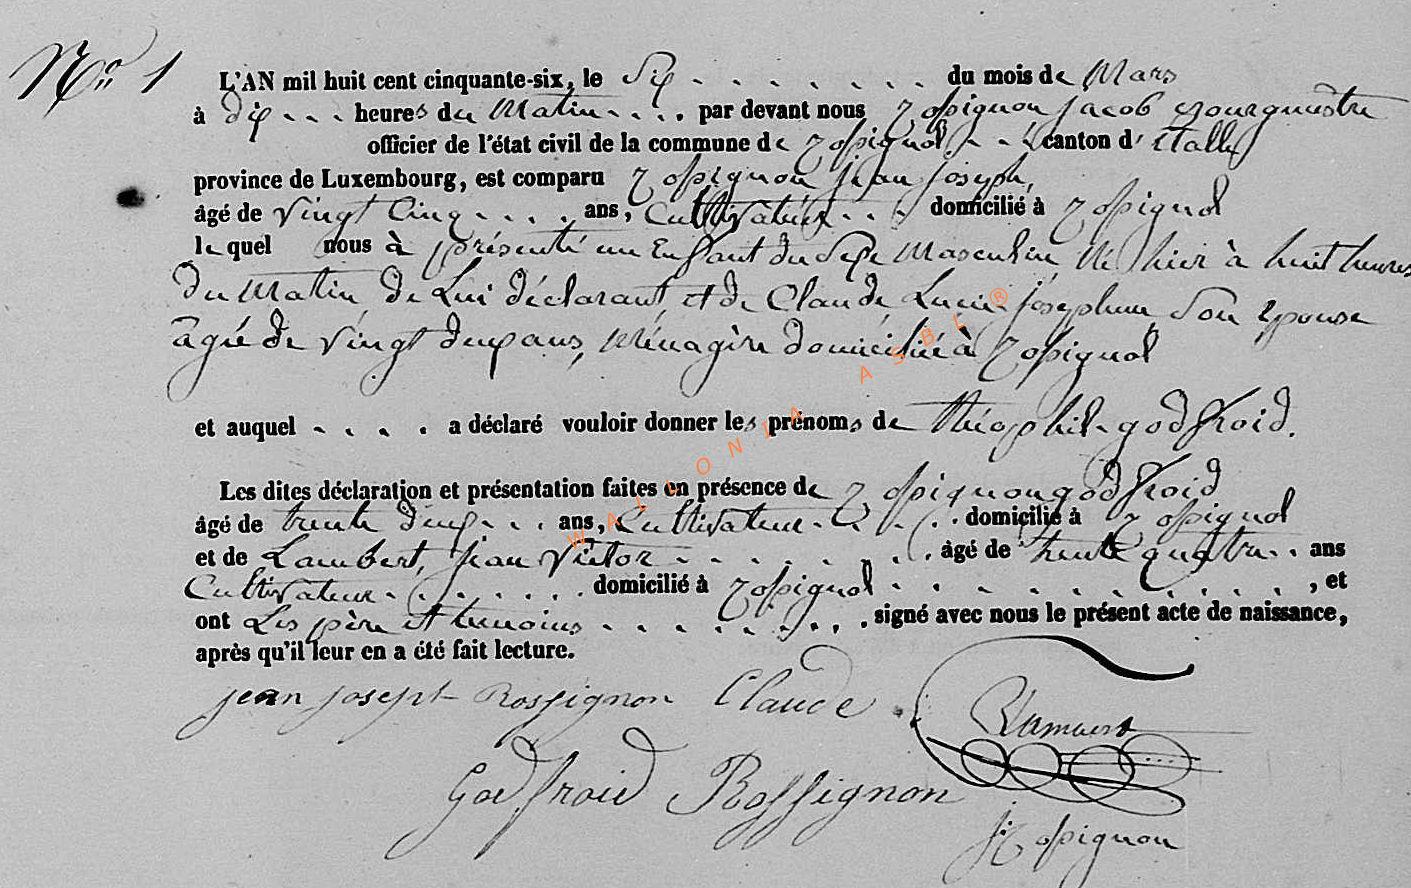 N° 1
L'AN mil huit cent cinquante-six, le Six . . . . . . . . du mois de Mars
à dix . . . heures du Matin . . . . par devant nous Rossignon Jacob Bourgmestre
officier de l'état civil de la commune de Rossignol . . . canton d'Etalle
province de Luxembourg, est comparu Rossignon Jean Joseph,
âgé de Vingt Cinq . . . . ans, Cultivateur . . . domicilié à Rossignol
le quel nous à présenté un Enfant du Sexe Masculin Né hier à huit heures
du Matin de Lui déclarant, et de Claude, Lucie Joséphine, Son Epouse
âgée de Vingt deux ans, Ménagère domiciliée à Rossignol
et auquel . . . . a déclaré vouloir donner les prénoms de Théophile godfroid.
Les dites déclaration et présentation faites en présence de Rossignon godfroid
âgé de trente deux . . . ans, Cultivateur . . . . . domicilié à Rossignol
et de Lambert, Jean Victor . . . . . . . . . âgé de trente quatre . . ans
Cultivateur . . . . . . . domicilié à Rossignol . . . . . . . . . . , et
ont Les père et temoins . . . . . . . . signé avec nous le présent acte de naissance,
après qu'il leur en a été fait lecture.
jean joseph Rossignon Claude Lambert
Godfroid Rossignon
J Rossignon
WALLONIA ASBL ®